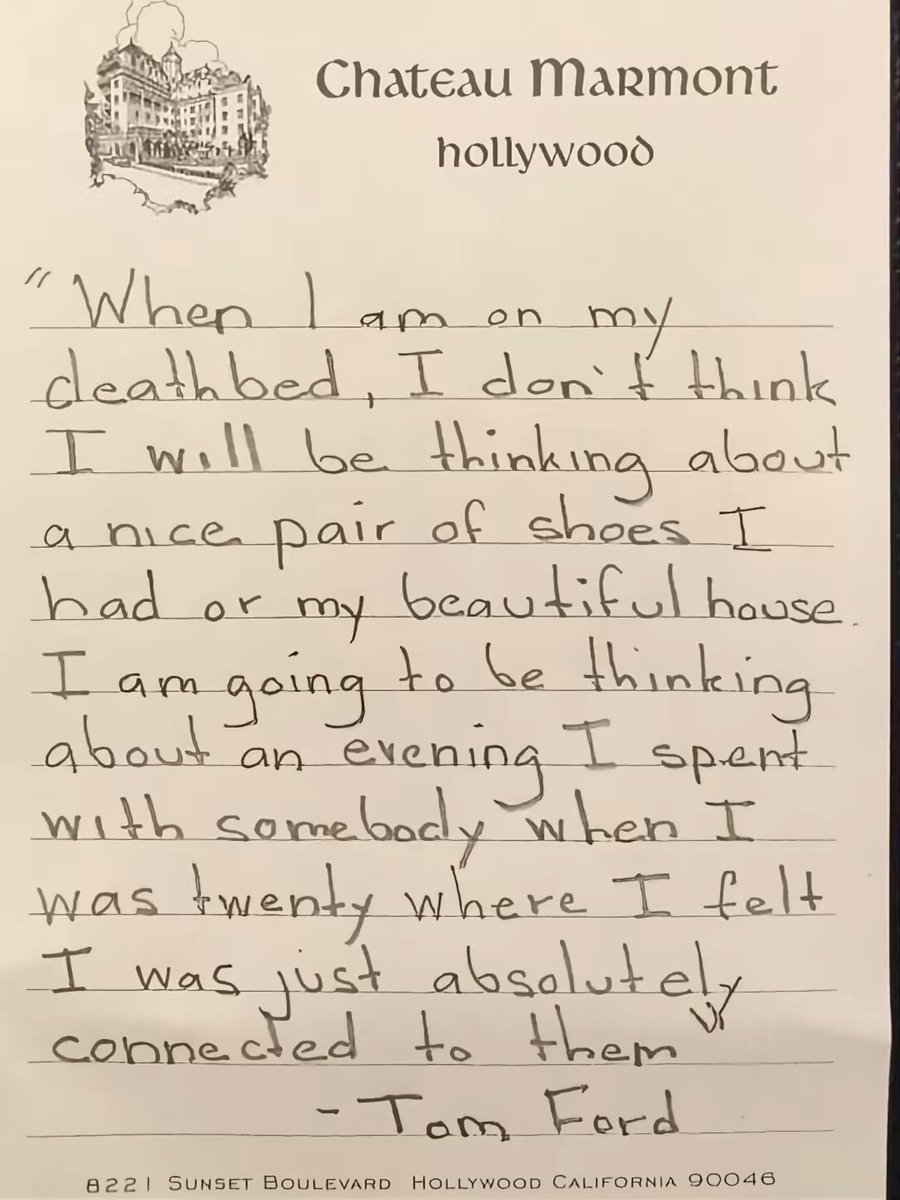 Chateau Marmont
hollywood
"When I am on my
deathbed, I don't think
I will be thinking about
a nice pair of shoes I
had or my beautiful house.
I am going to be thinking
about an evening I spent
with somebody when I
was twenty where I felt
I was just absolutely
connected to them"
- Tom Ford
8221 Sunset Boulevard Hollywood California 90046